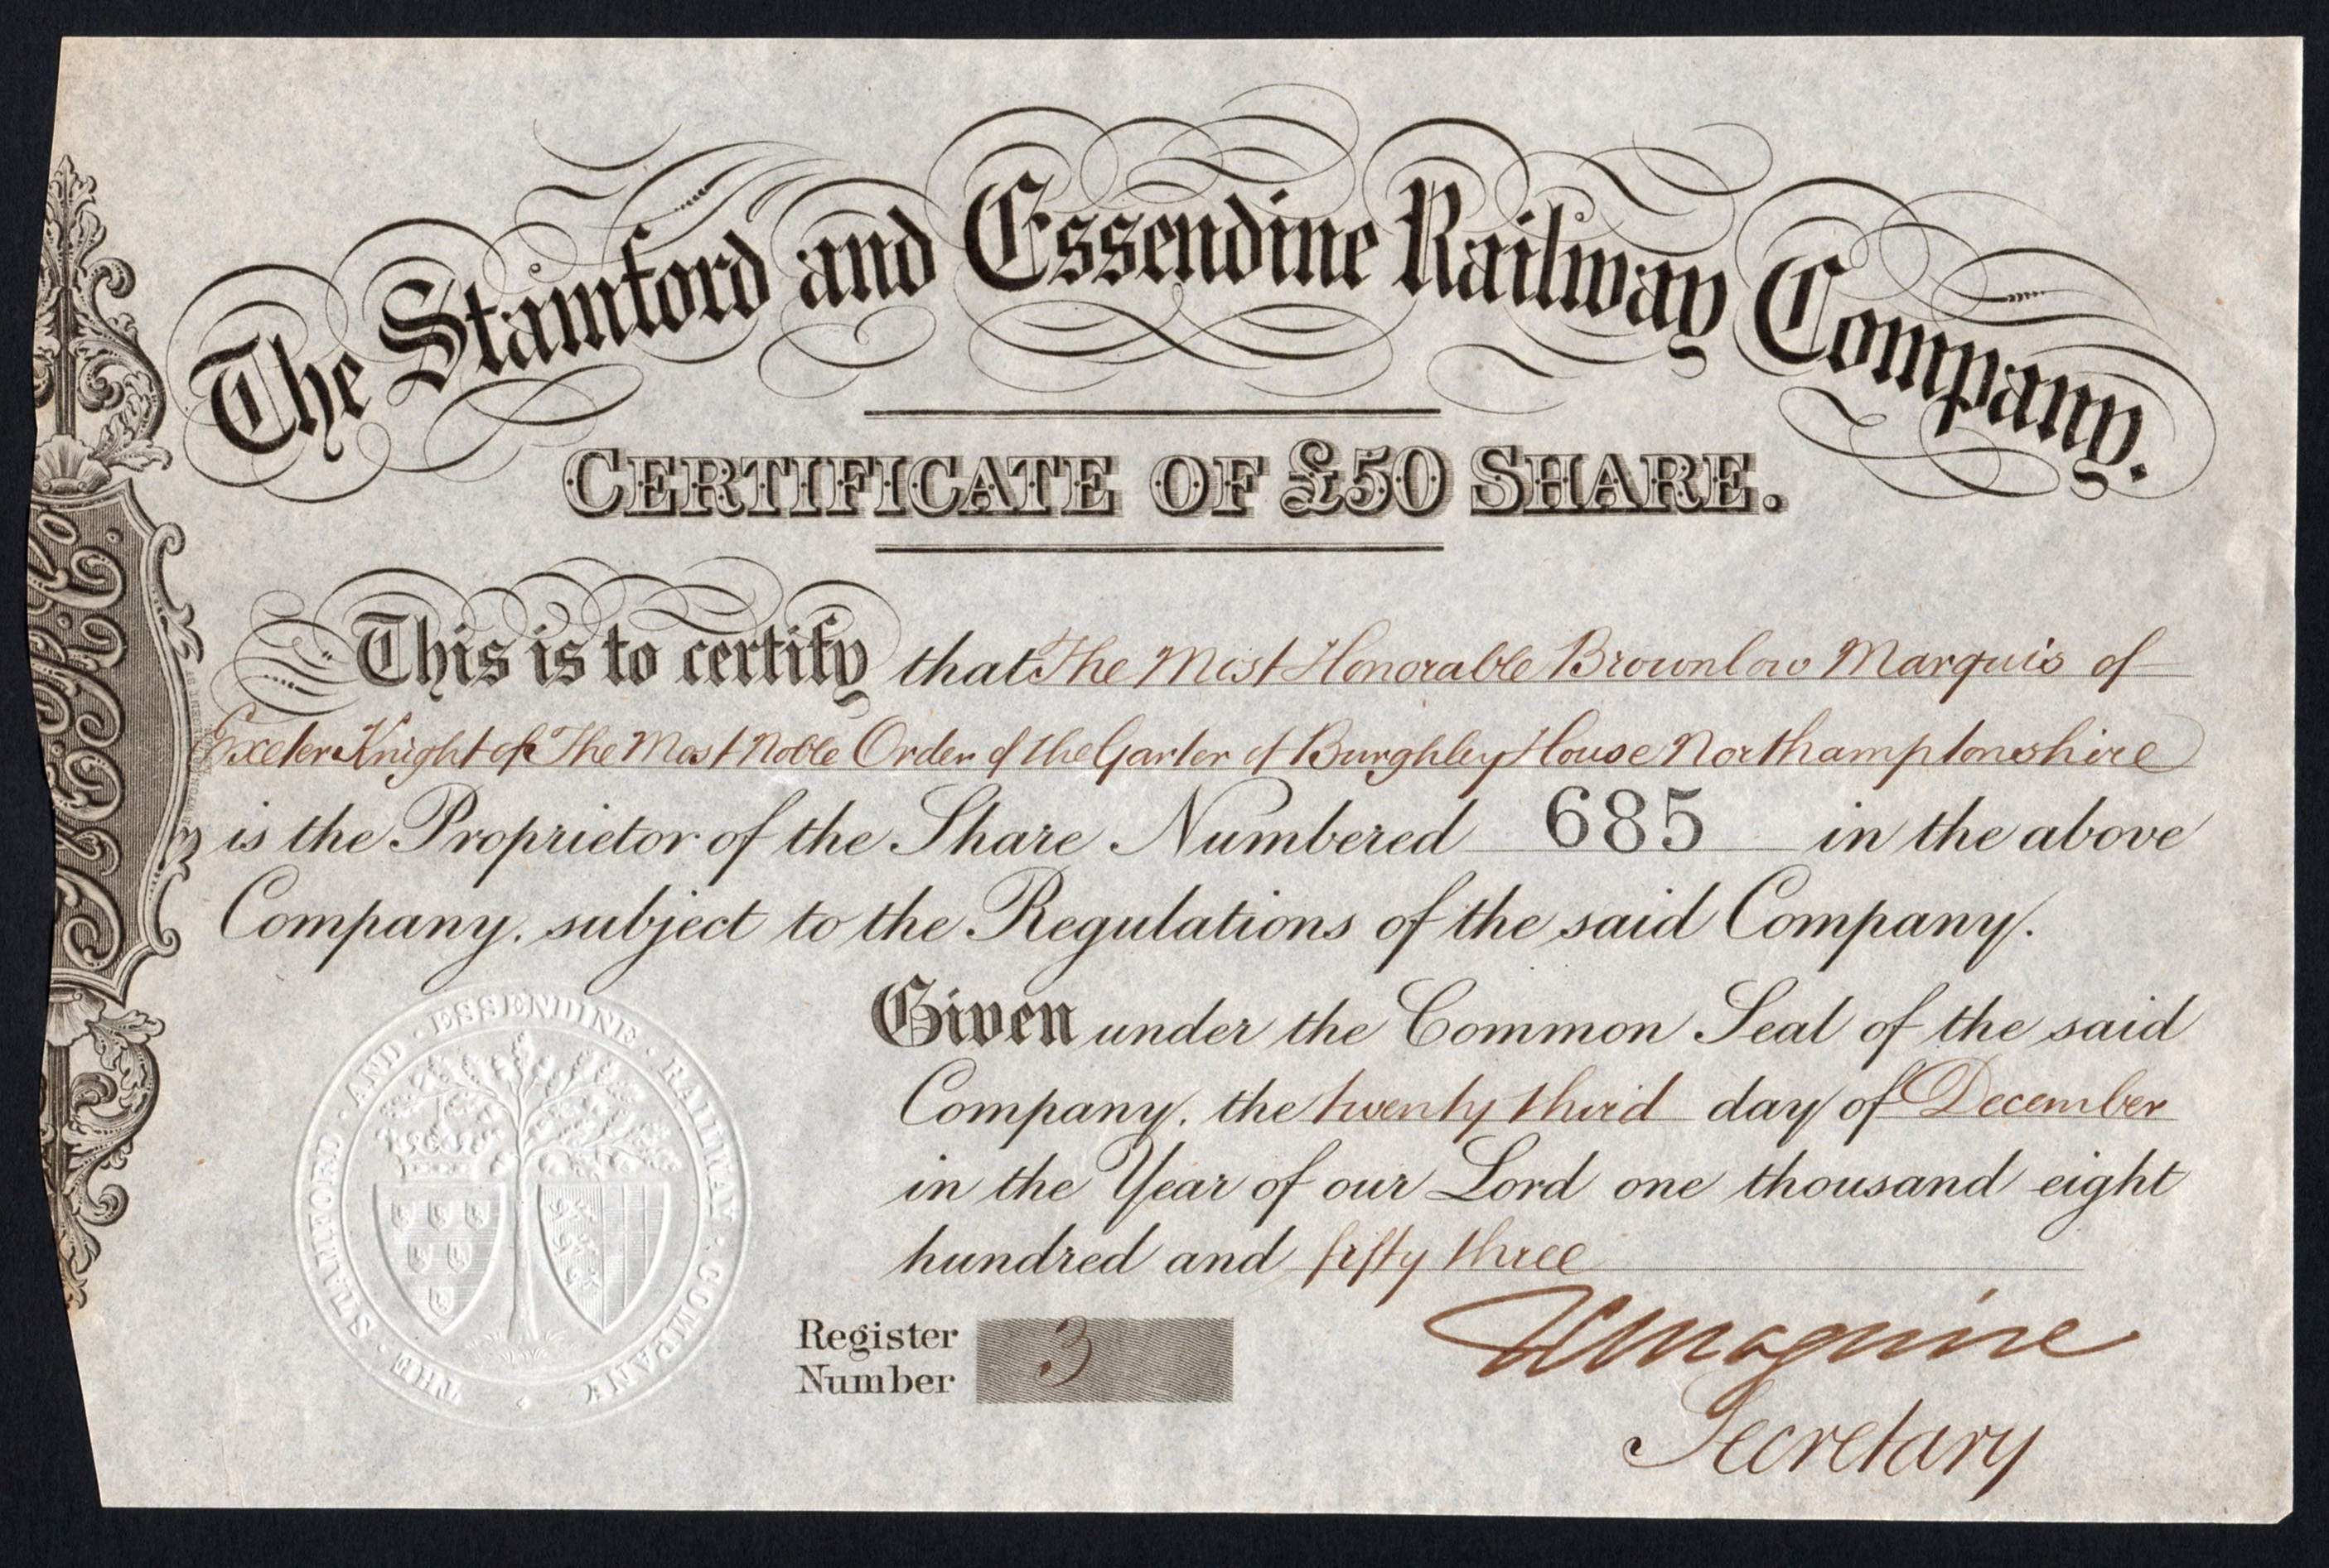 The Stamford and Essendine Railway Company.
CERTIFICATE OF £50 SHARE.
This is to certify that The Most Honorable Brownlow Marquis of
Exeter Knight of The Most Noble Order of the Garter of Burghley House Northamptonshire
is the Proprietor of the Share Numbered 685 in the above
Company, subject to the Regulations of the said Company.
Given under the Common Seal of the said
Company, the twenty third day of December
in the Year of our Lord one thousand eight
hundred and fifty three
THE · STAMFORD · AND · ESSENDINE · RAILWAY · COMPANY ·
Register
Number 3
Maguire
Secretary